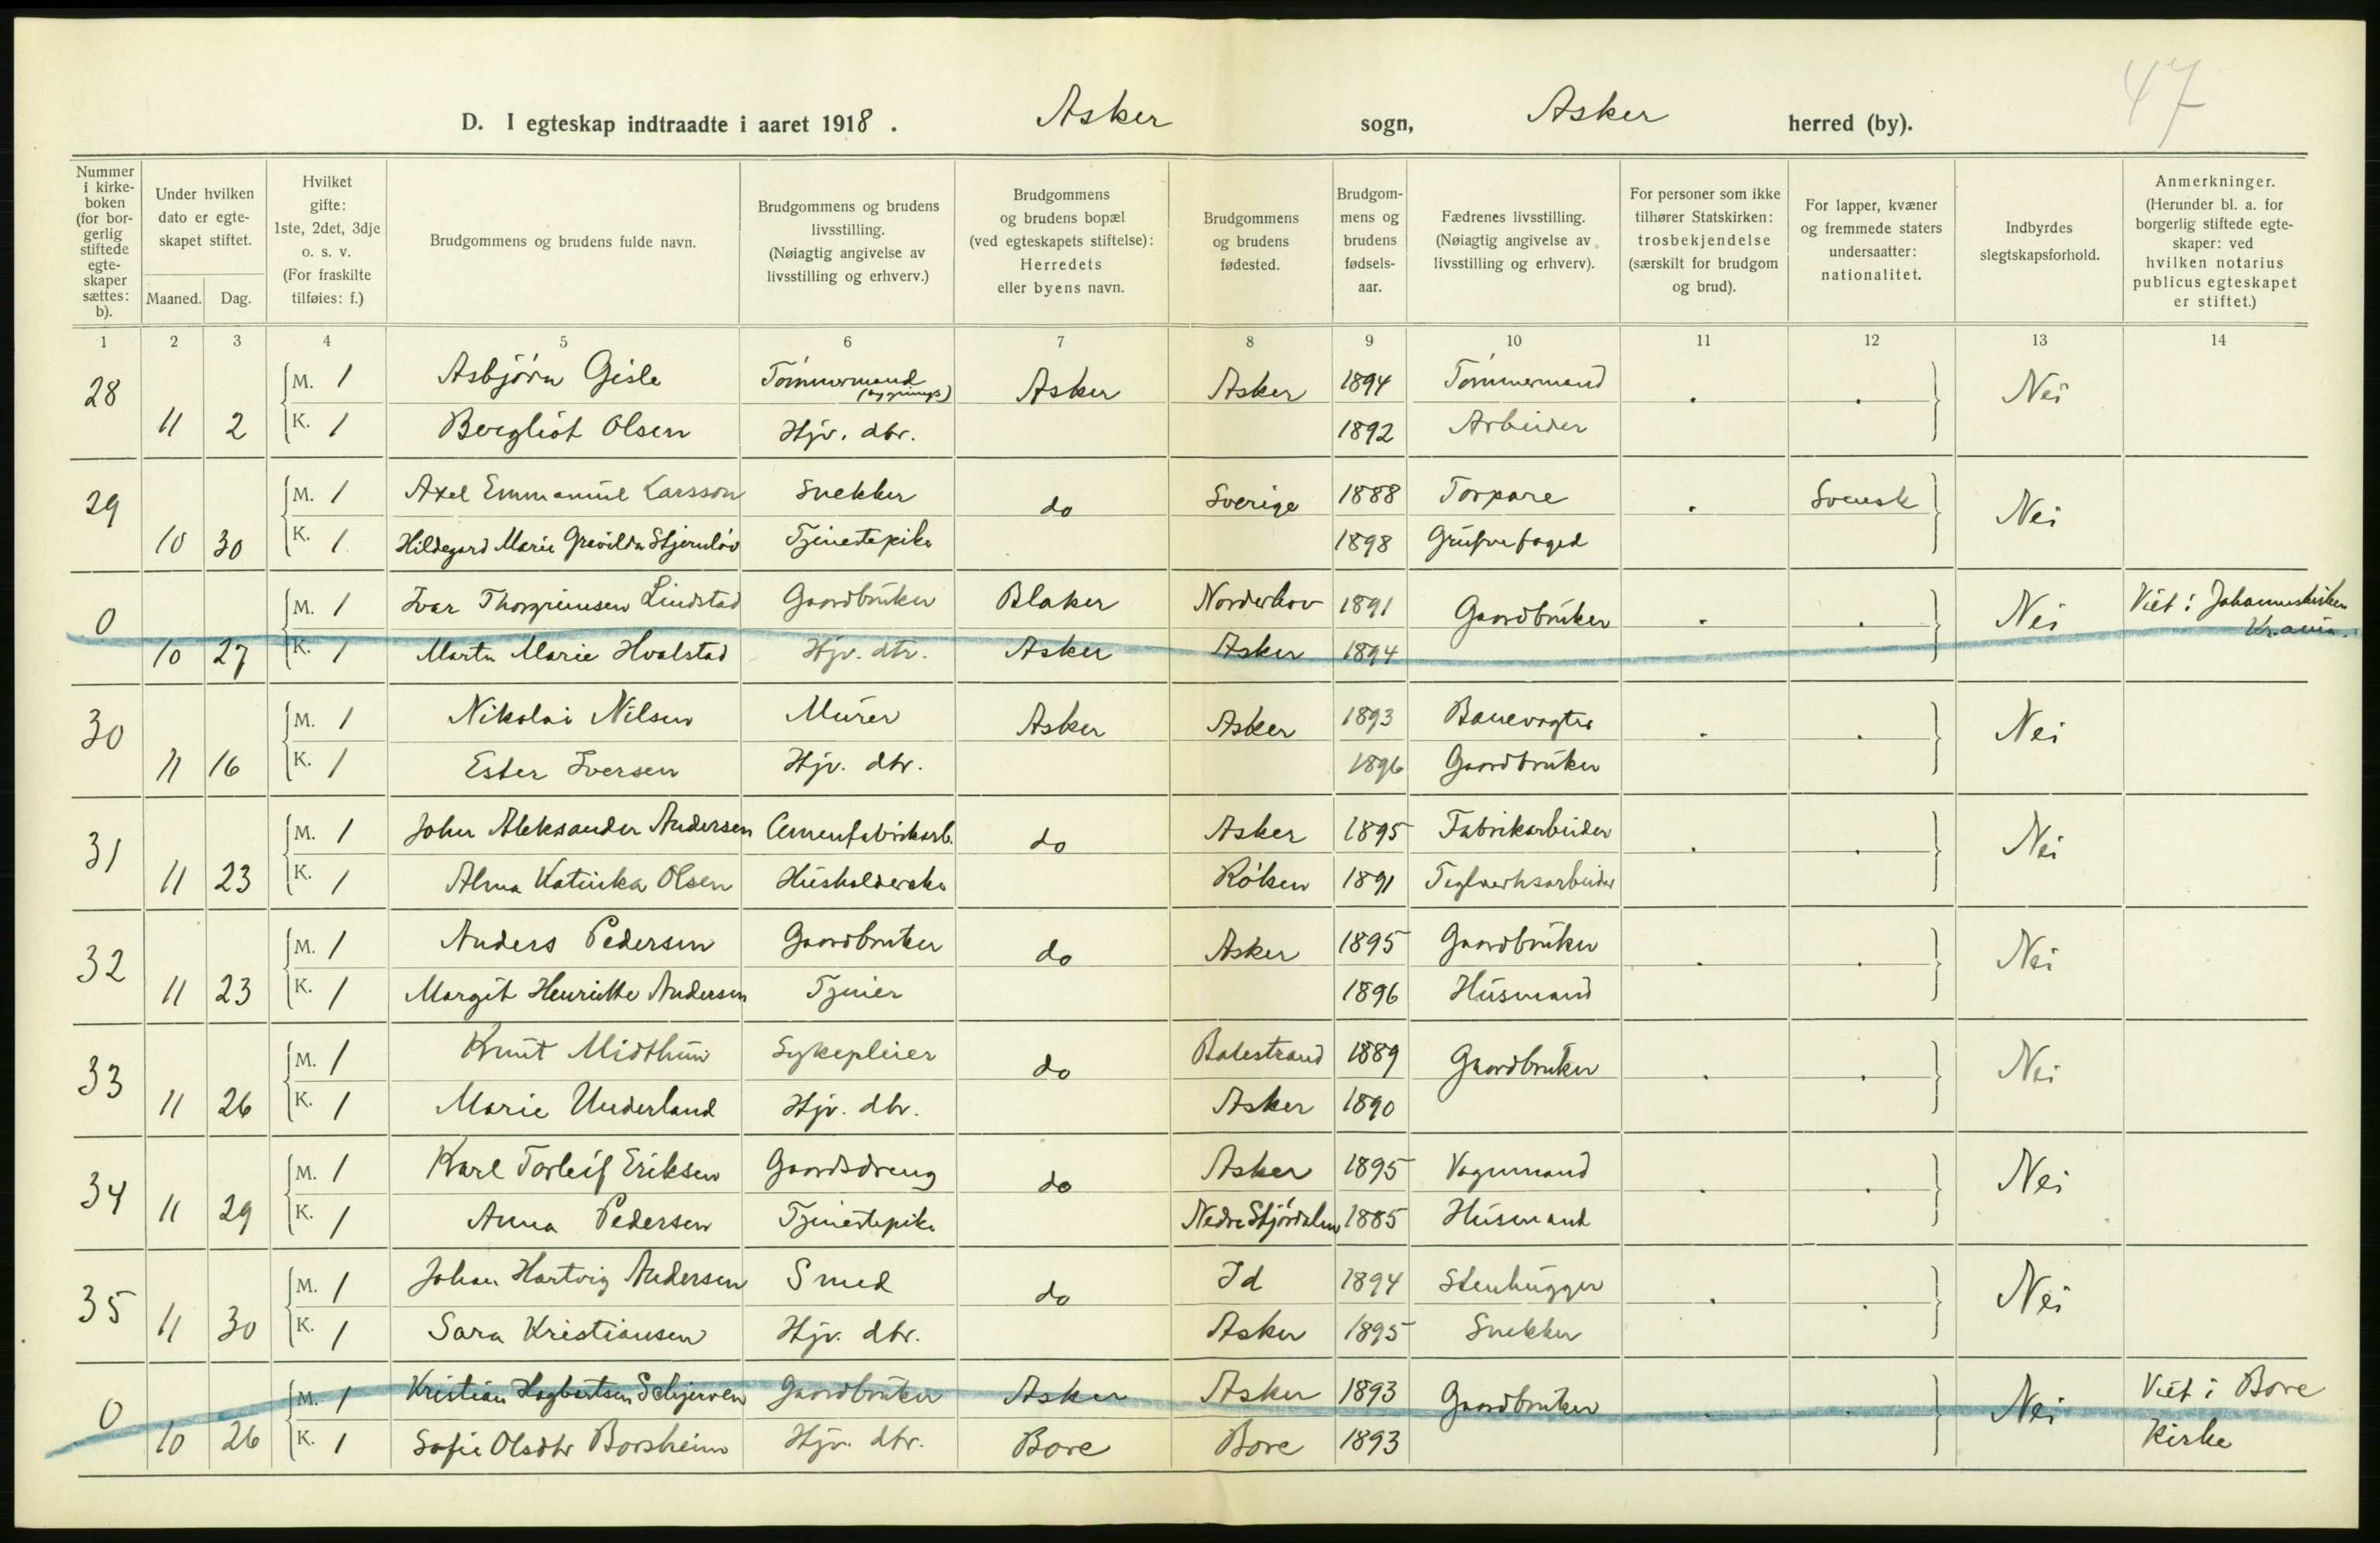 47
D. I egteskap indtraadte i aaret 1918 . Asker sogn, Asker herred (by).
Nummer i kirke-boken (for bor-gerlig stiftede egte-skaper sættes: b).
Under hvilken dato er egte-skapet stiftet.
Maaned. Dag.
Hvilket gifte: 1ste, 2det, 3dje o. s. v. (For fraskilte tilføies: f.)
Brudgommens og brudens fulde navn.
Brudgommens og brudens livsstilling. (Nøiagtig angivelse av livsstilling og erhverv.)
Brudgommens og brudens bopæl (ved egteskapets stiftelse): Herredets eller byens navn.
Brudgommens og brudens fødested.
Brudgom-mens og brudens fødsels-aar.
Fædrenes livsstilling. (Nøiagtig angivelse av livsstilling og erhverv).
For personer som ikke tilhører Statskirken: trosbekjendelse (særskilt for brudgom og brud).
For lapper, kvæner og fremmede staters undersaatter: nationalitet.
Indbyrdes slegtskapsforhold.
Anmerkninger. (Herunder bl. a. for borgerlig stiftede egte-skaper: ved hvilken notarius publicus egteskapet er stiftet.)
1 2 3 4 5 6 7 8 9 10 11 12 13 14
28 M. 1 Asbjörn Gisle Tömmermand (bygnings) Asker Asker 1894 Tömmermand . . Nei
11 2 K. 1 Bergliot Olsen Hjv. dtr. 1892 Arbeider
29 M. 1 Axel Emmanuel Larsson Snekker do Sverige 1888 Torpare . Svensk Nei
10 30 K. 1 Hildegard Marie Stjernlöv Tjenestepike 1898 Grufvefoged
0 M. 1 Ivar Thorgrimsen Lindstad Gaardbruker Blaker Norderhov 1891 Gaardbruker . . Nei Viet i Johanneskirken
10 27 K. 1 Marta Marie Hvalstad Hjv. dtr. Asker Asker 1894 Kr.ania.
30 M. 1 Nikolai Nilsen Murer Asker Asker 1893 Banevogter . . Nei
11 16 K. 1 Ester Iversen Hjv. dtr. 1896 Gaardbruker
31 M. 1 John Aleksander Andersen Cemenfabrikarb. do Asker 1895 Fabrikarbeider . . Nei
11 23 K. 1 Alma Katinka Olsen Husholderske Röken 1891 Teglverksarbeider
32 M. 1 Anders Pedersen Gaardbruker do Asker 1895 Gaardbruker . . Nei
11 23 K. 1 Margit Henriette Andersen Tjener 1896 Husmand
33 M. 1 Knut Midthun Sykepleier do Balestrand 1889 Gaardbruker . . Nei
11 26 K. 1 Marie Underland Hjv. dtr. Asker 1890
34 M. 1 Karl Torleif Eriksen Gaardsdreng do Asker 1895 Vognmand . . Nei
11 29 K. 1 Anna Pedersen Tjenestepike Nedre Stjördalen 1885 Husmand
35 M. 1 Johan Hartvig Andersen Smed do Id 1894 Stenhugger . . Nei
11 30 K. 1 Sara Kristiansen Hjv. dtr. Asker 1895 Snekker
0 M. 1 Kristian Hagbartsen Schjerven Gaardbruker Asker Asker 1893 Gaardbruker . . Nei Viet i Bore
10 26 K. 1 Sofie Olsdtr Borsheim Hjv. dtr. Bore Bore 1893 Kirke